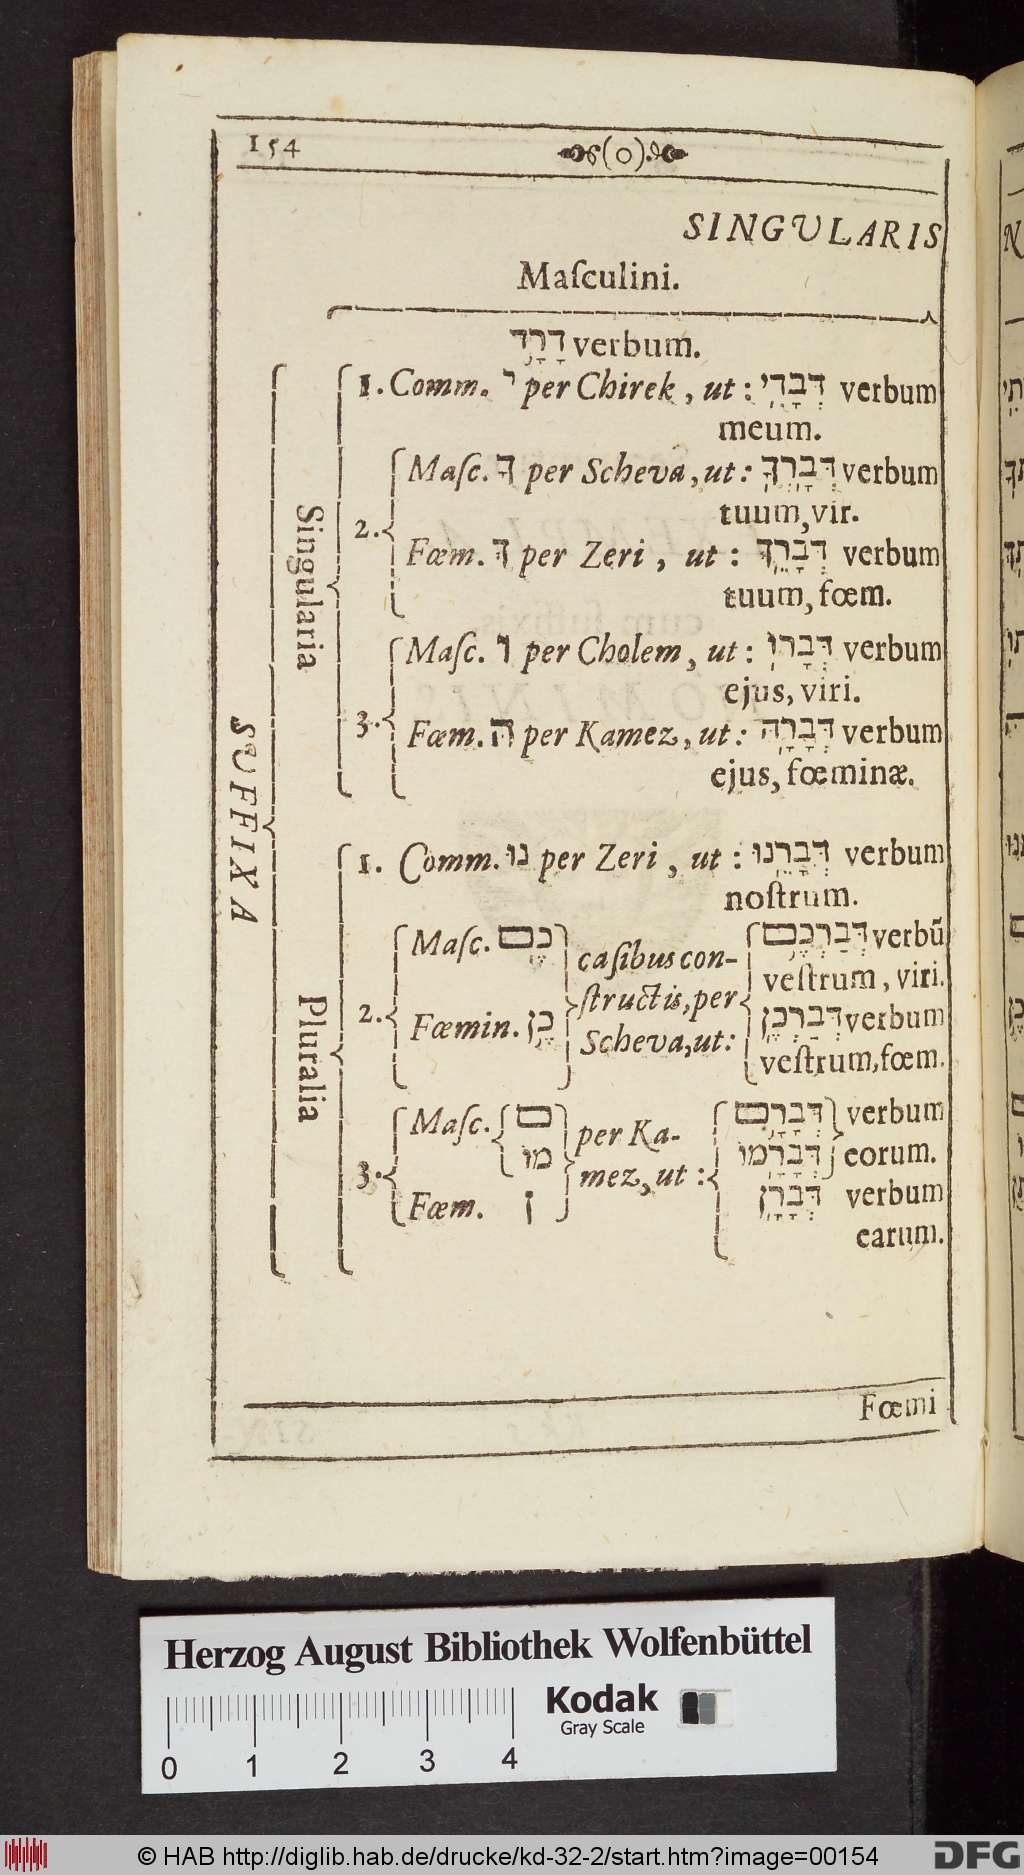 154 (o)
SINGULARIS
Maſculini.
דָּרָד verbum.
SUFFIXA
Singularia
1. Comm. י per Chirek, ut: דְּבָרִי verbum
meum.
2.
Maſc. ךָ per Scheva, ut: דְּבָרְךָ verbum
tuum, vir.
Fœm. ךְ per Zeri, ut: דְּבָרֵךְ verbum
tuum, fœm.
3.
Maſc. וֹ per Cholem, ut: דְּבָרוֹ verbum
ejus, viri.
Fœm. הּ per Kamez, ut: דְּבָרָהּ verbum
ejus, fœminæ.
Pluralia
1. Comm. נוּ per Zeri, ut: דְּבָרֵנוּ verbum
noſtrum.
2.
Maſc. כֶם
Fœmin. כֶן
caſibus con-
ſtructis, per
Scheva, ut:
דְּבַרְכֶם verbū
veſtrum, viri.
דְּבַרְכֶן verbum
veſtrum, fœm.
3.
Maſc. ם
מוֹ
Fœm. ן
per Ka-
mez, ut:
דְּבָרָם verbum
דְּבָרָמוֹ eorum.
דְּבָרָן verbum
earum.
Fœmi
Herzog August Bibliothek Wolfenbüttel
Kodak
Gray Scale
0 1 2 3 4
© HAB http://diglib.hab.de/drucke/kd-32-2/start.htm?image=00154
DFG